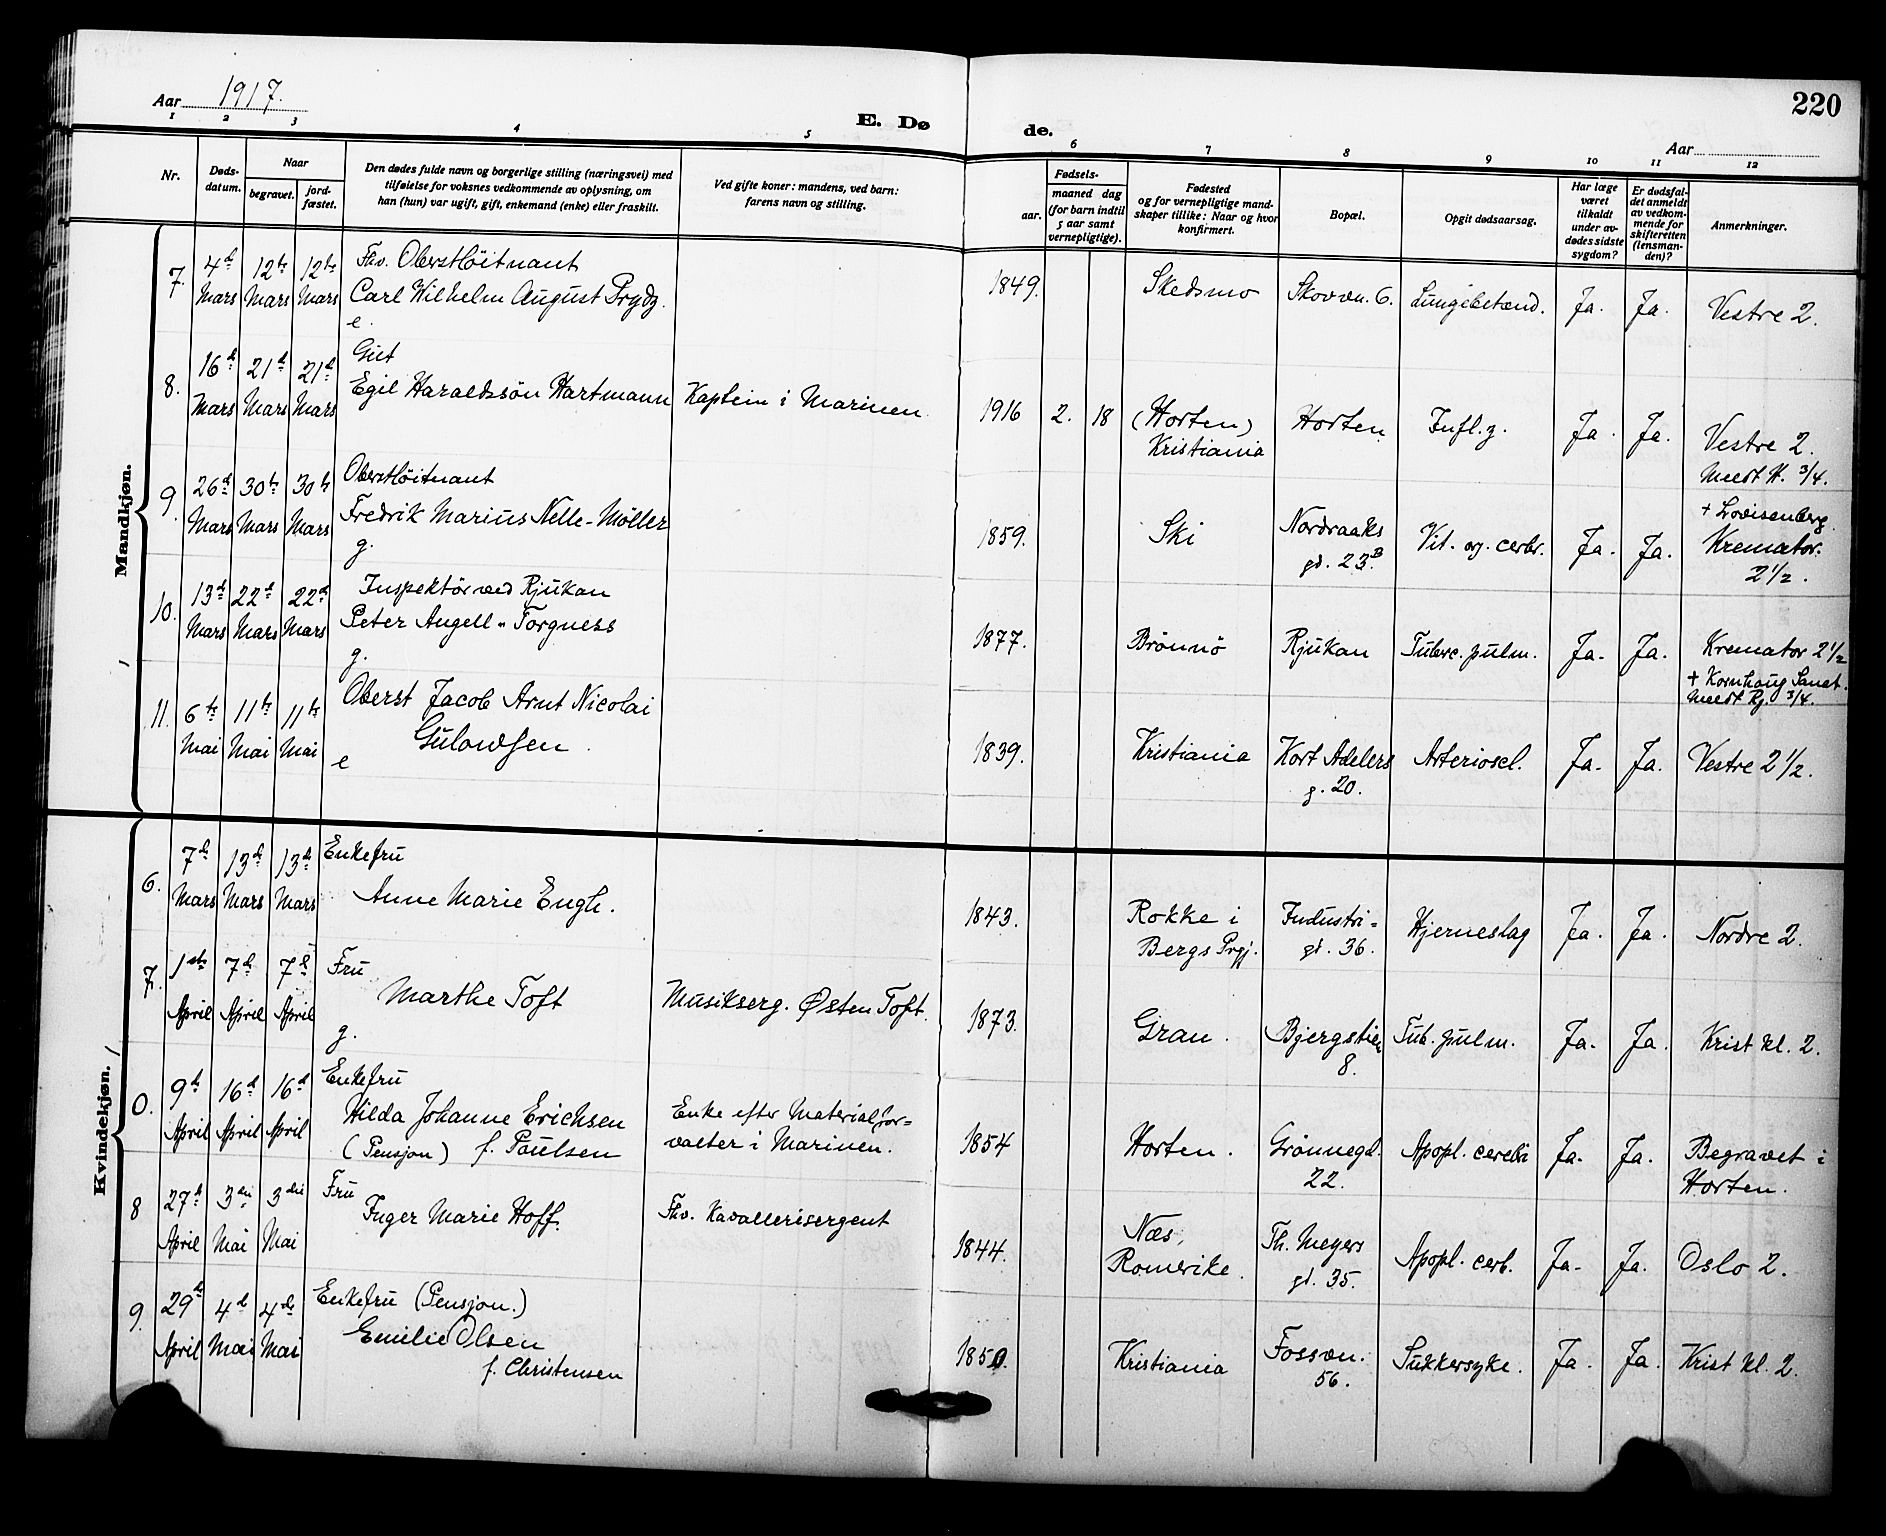 Aar 1917.
E. Døde.
Aar
220
1 2 3 4 5 6 7 8 9 10 11 12
Nr.
Døds-
datum.
Naar
begravet.
jord-
fæstet.
Den dødes fulde navn og borgerlige stilling (næringsvei) med
tilføielse for voksnes vedkommende av oplysning, om
han (hun) var ugift, gift, enkemand (enke) eller fraskilt.
Ved gifte koner: mandens, ved barn:
farens navn og stilling.
Fødsels-
aar.
maaned dag
(for barn indtil
5 aar samt
vernepligtige).
Fødested
og for vernepligtige mand-
skaper tillike: Naar og hvor
konfirmert.
Bopæl.
Opgit dødsaarsag.
Har læge
været
tilkaldt
under av-
dødes sidste
sygdom?
Er dødsfal-
det anmeldt
av vedkom-
mende for
skifteretten
(lensman-
den)?
Anmerkninger.
Mandkjøn.
7. 4de Mars 12te Mars 12te Mars
Fhv. Oberstløitnant
Carl Wilhelm August Prydz.
e.
1849. Skedsmo Skovvn. 6. Lungebetænd. Ja. Ja. Vestre 2.
8. 16d Mars 21d Mars 21d Mars
Gut
Egil Haraldssøn Hartmann Kaptein i Marinen.
1916 2. 18 (Horten)
Kristiania
Horten Infl.z. Ja. Ja. Vestre 2.
Meldt H. 3/4.
9. 26d Mars 30te Mars 30te Mars
Oberstløitnant
Fredrik Marius Nelle-Møller
g.
1859. Ski Nordraaks
gd. 23B. Vit. org. cerbr. Ja. Ja.
+ Lovisenberg.
Kremator.
2 1/2.
10. 13d Mars 22d Mars 22d Mars
Inspektør ved Rjukan
Peter Angell-Torgness
g.
1877. Brønnø Rjukan Tuberc. pulm. Ja. Ja. Kremator 2 1/2
+ Kornhaug Sanat.
Meldt Rj. 3/4.
11. 6te Mai 11te Mai 11te Mai
Oberst Jacob Arnt Nicolai
Gulowsen.
e
1839. Kristiania Kort Adelers
g. 20. Arterioscl. Ja. Ja. Vestre 2 1/2.
Kvindekjøn.
6. 7de Mars 13de Mars 13de Mars
Enkefru
Anne Marie Engh.
1843. Rokke i
Bergs Prgj. Industri-
gd. 36. Hjerneslag Ja. Ja. Nordre 2.
7. 1ste April 7d April 7d April
Fru
Marthe Toft Musikserg. Østen Toft.
g.
1873. Gran. Bjergstien
8. Tub. pulm. Ja. Ja. Krist kl. 2.
0. 9d April 16d April 16d April
Enkefru
Hilda Johanne Erichsen
(Pensjon) f. Paulsen
Enke efter Materialfor-
valter i Marinen.
1854 Horten. Grønnegd.
22. Apopl. cerebri Ja. Ja. Begravet i
Horten.
8 27d April 3die Mai 3die Mai
Fru
Inger Marie Hoff. Fhv. Kavallerisergent
1844. Næs,
Romerike. Th. Meyers
gd. 35. Apopl. cerb. Ja. Ja. Oslo 2.
9. 29de April 4d Mai 4de Mai
Enkefru (Pensjon.)
Emilie Olsen
f. Christensen
1850. Kristiania Fossvn.
56. Sukkersyke. Ja. Ja. Krist kl. 2.